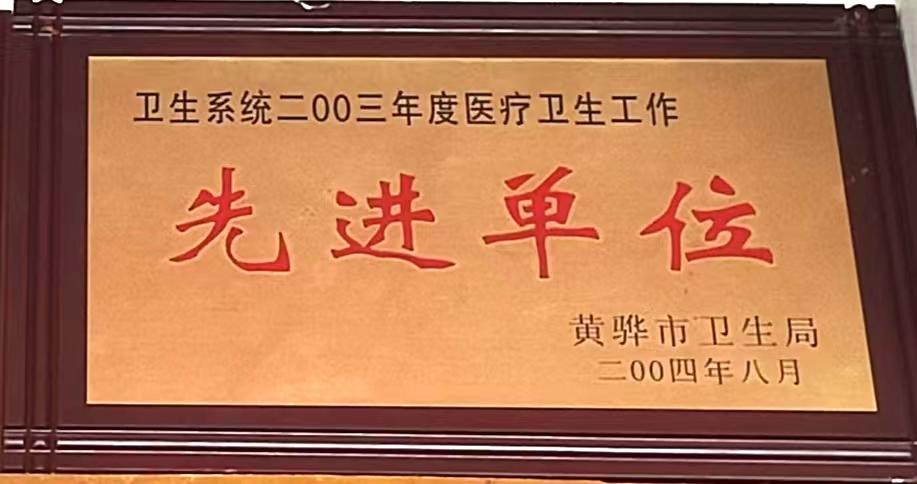 卫生系统二00三年度医疗卫生工作
先进单位
黄骅市卫生局
二00四年八月